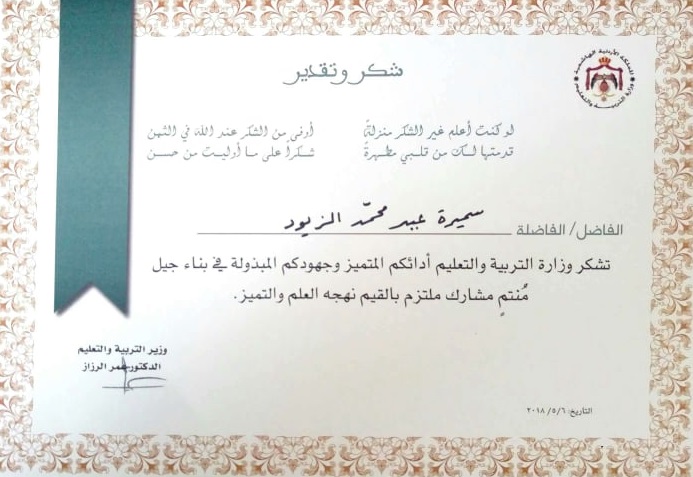 المملكة الأردنية الهاشمية
وزارة التربية والتعليم
شكر وتقدير
لو كنت أعلم غير الشكر منزلةً أوفى من الشكر عند الله في الثمن
قدمتها لك من قلبي مطهرةً شكراً على ما أوليت من حسن
الفاضل/ الفاضلة سميرة عبد محمّد الزيود
تشكر وزارة التربية والتعليم أدائكم المتميز وجهودكم المبذولة في بناء جيل
مُنتمٍ مشارك ملتزم بالقيم نهجه العلم والتميز.
وزير التربية والتعليم
الدكتور عمر الرزاز
التاريخ: ٢٠١٨/٥/٦